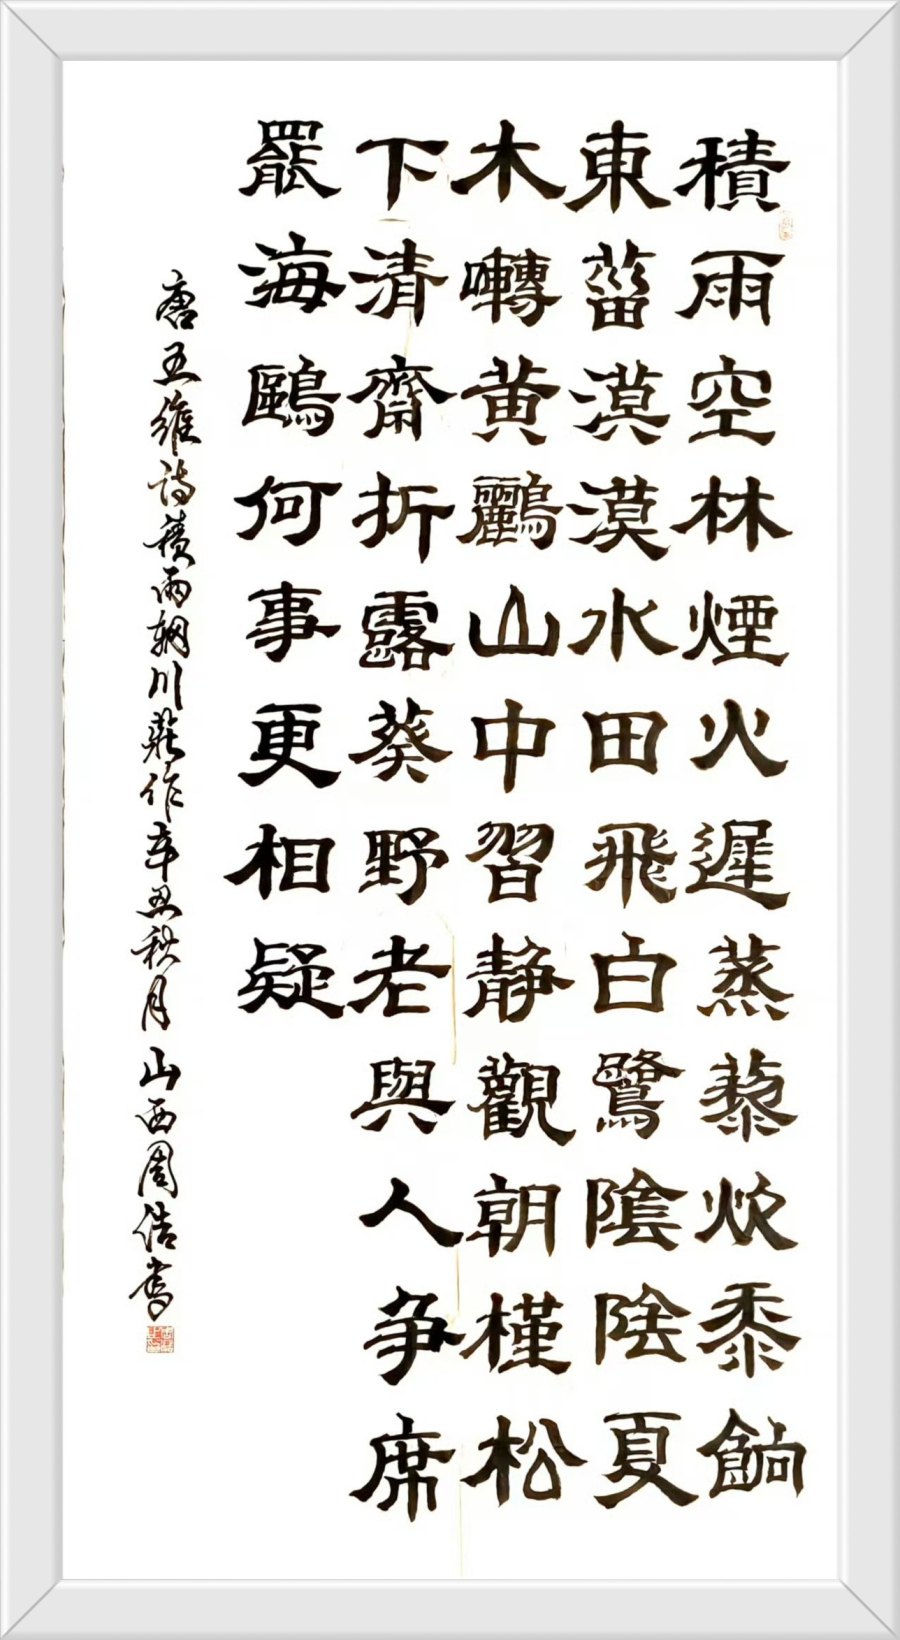 積雨空林煙火遲蒸藜炊黍餉
東菑漠漠水田飛白鷺陰陰夏
木囀黃鸝山中習靜觀朝槿松
下清齋折露葵野老與人爭席
罷海鷗何事更相疑
唐王維詩積雨輞川莊作辛丑秋月山西周浩書